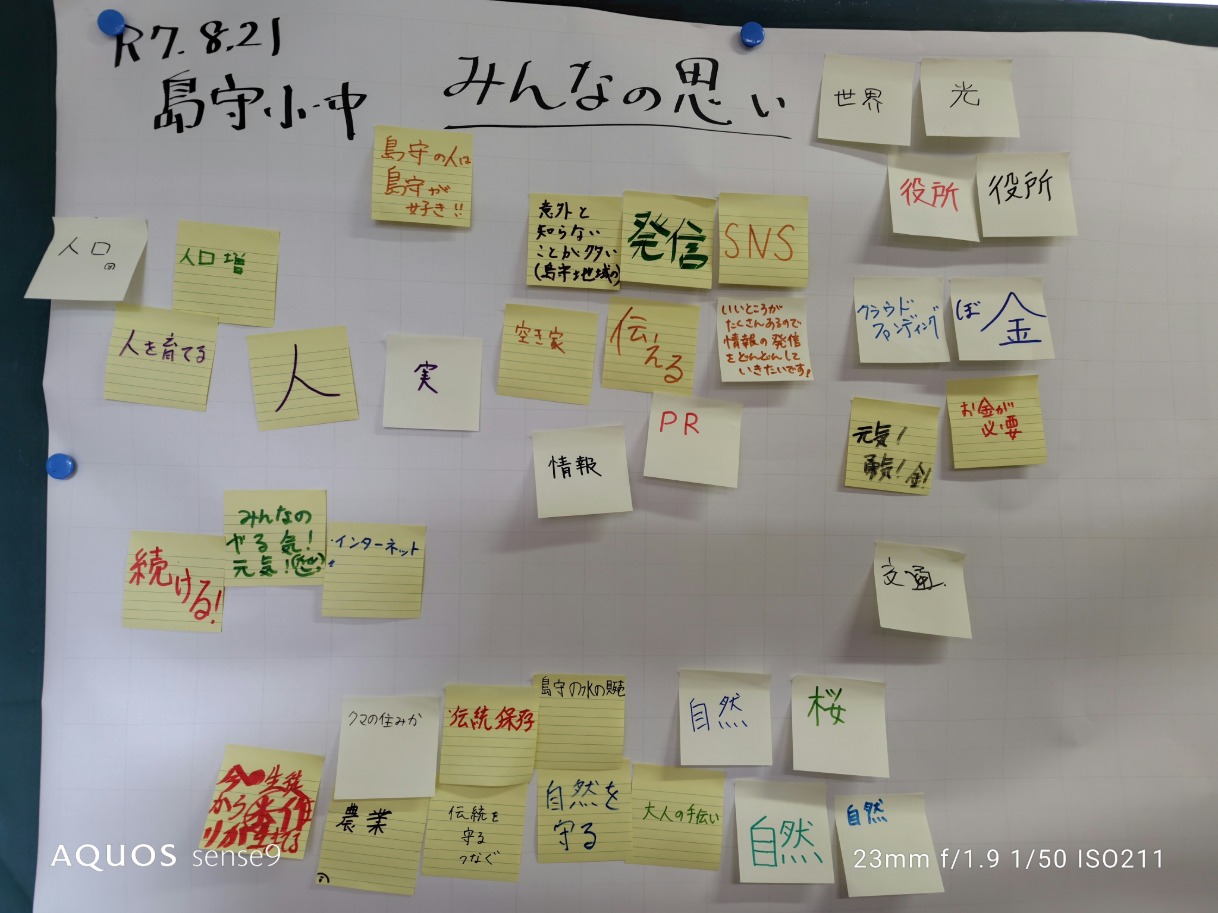 R7.8.21
島守小・中
みんなの思い
世界
光
役所
役所
島守の人は
島守が
好き!!
意外と
知らない
ことが多い
(島守地域の)
発信
SNS
人口
人口増
人を育てる
人
実
空き家
伝える
いいところが
たくさんあるので
情報の発信
をどんどんして
いきたいです!
クラウド
ファンディング
ぼ金
PR
情報
元気!
勇気!金!
お金が
必要
続ける!
みんなの
やる気!
元気!
インターネット
交通
クマの住みか
伝統保存
島守の水の販売
自然
桜
今
から
農業
伝統を
守る
つなぐ
自然を
守る
大人の手伝い
自然
自然
AQUOS sense9
23mm f/1.9 1/50 ISO211